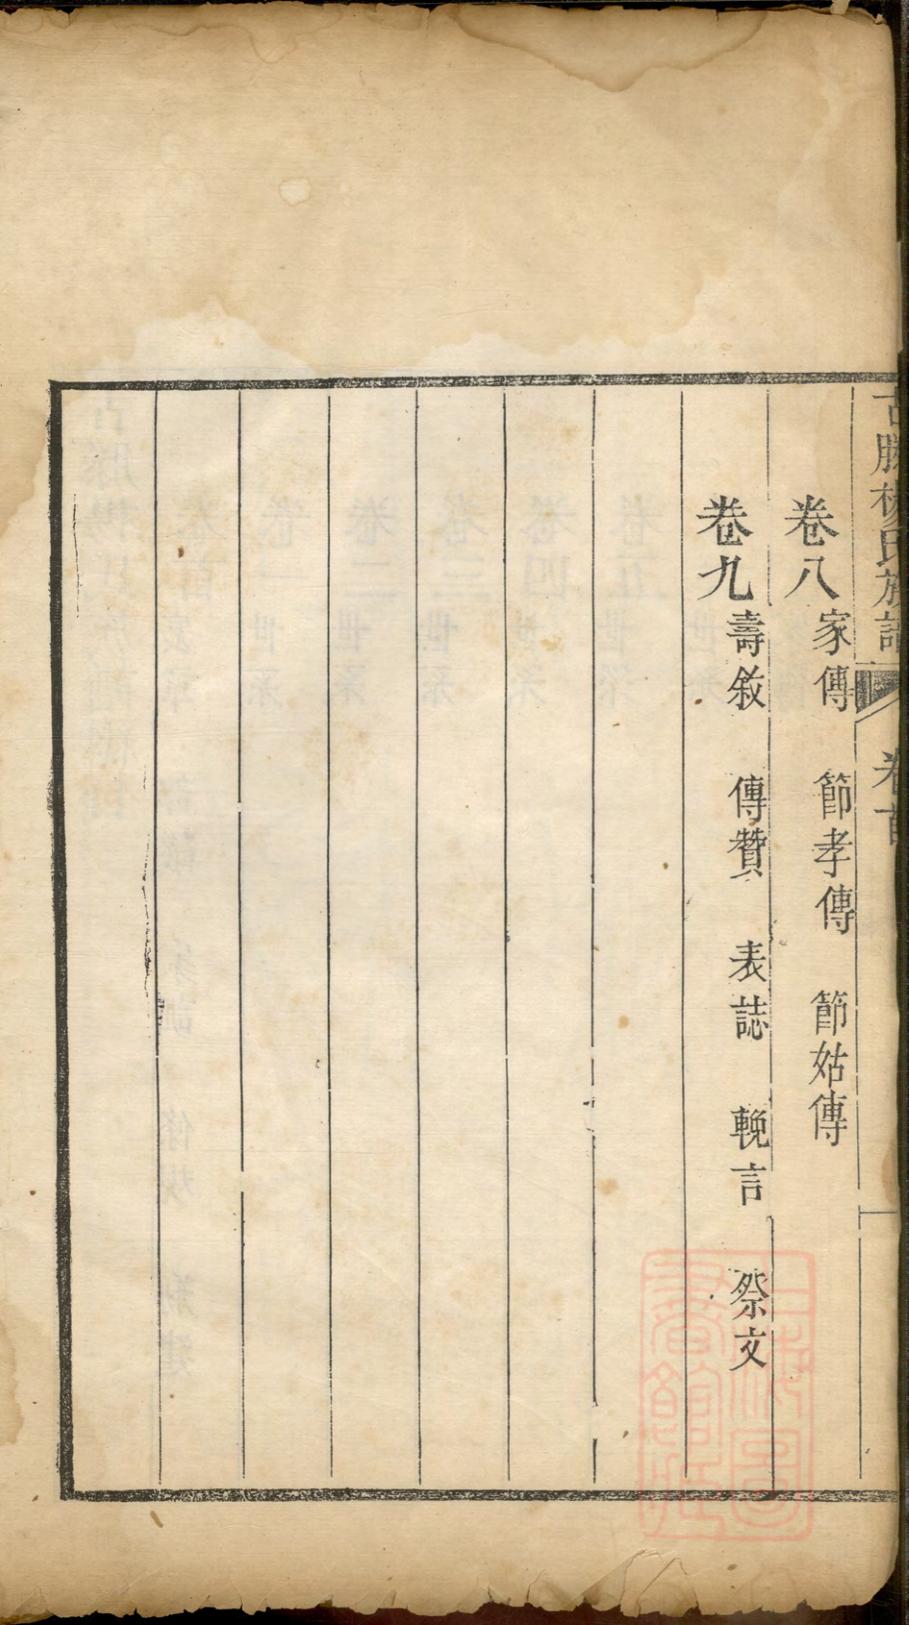 古勝楊氏族譜 卷首 一
卷八 家傳 節孝傳 節姑傳
卷九 壽敘 傳贊 表誌 輓言 祭文